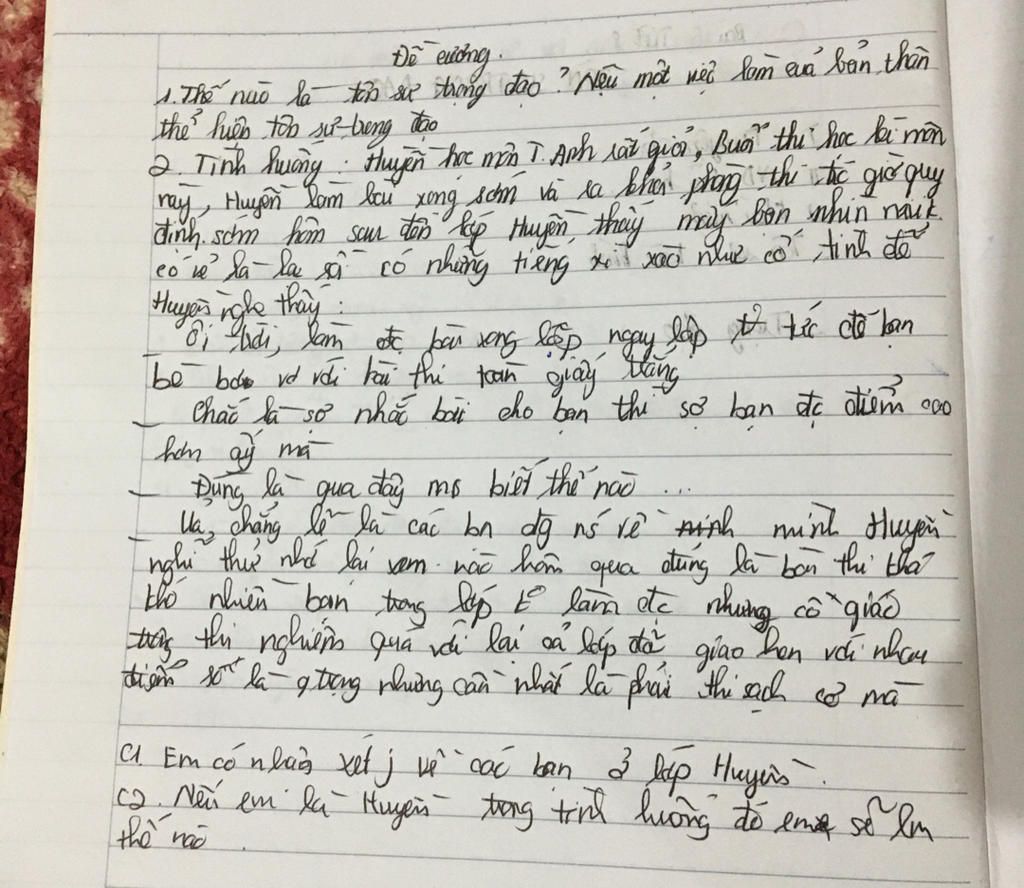 Đề cương.
1. Thế nào là tôn sư trọng đạo? Nêu một việc làm của bản thân
thể hiện tôn sư trọng đạo
2. Tình huống: Huyền học môn T. Anh rất giỏi, Buổi thi học kì môn
này, Huyền làm bài xong sớm và ra khỏi phòng thi tc giờ quy
định. sớm hôm sau đến lớp Huyền thấy mấy bạn nhìn mik
có vẻ là lạ rồi có những tiếng xì xào như cố tình để
Huyền nghe thấy:
Ôi trời, làm đc bài xong lập ngay lập tức để bạn
bè bơ vơ với bài thi toàn giấy trắng
_ Chắc là sợ nhắc bài cho bạn thì sợ bạn đc điểm cao
hơn ấy mà
_ Đúng là qua đây ms biết thế nào ...
Ua, chẳng lẽ là các bn đg ns về mình Huyền
nghĩ thử nhớ lại xem nào hôm qua đúng là bài thi khá
khó nhiên bạn trong lớp k làm đc nhưng cô giáo
trông thi nghiêm quá với lại cả lớp đã giao hẹn với nhau
điểm số là q trọng nhưng cần nhất là phải thi sạch cơ mà
C1. Em có nhận xét j về các bạn ở lớp Huyền.
C2. Nếu em là Huyền trong tình huống đó em sẽ lm
thế nào.